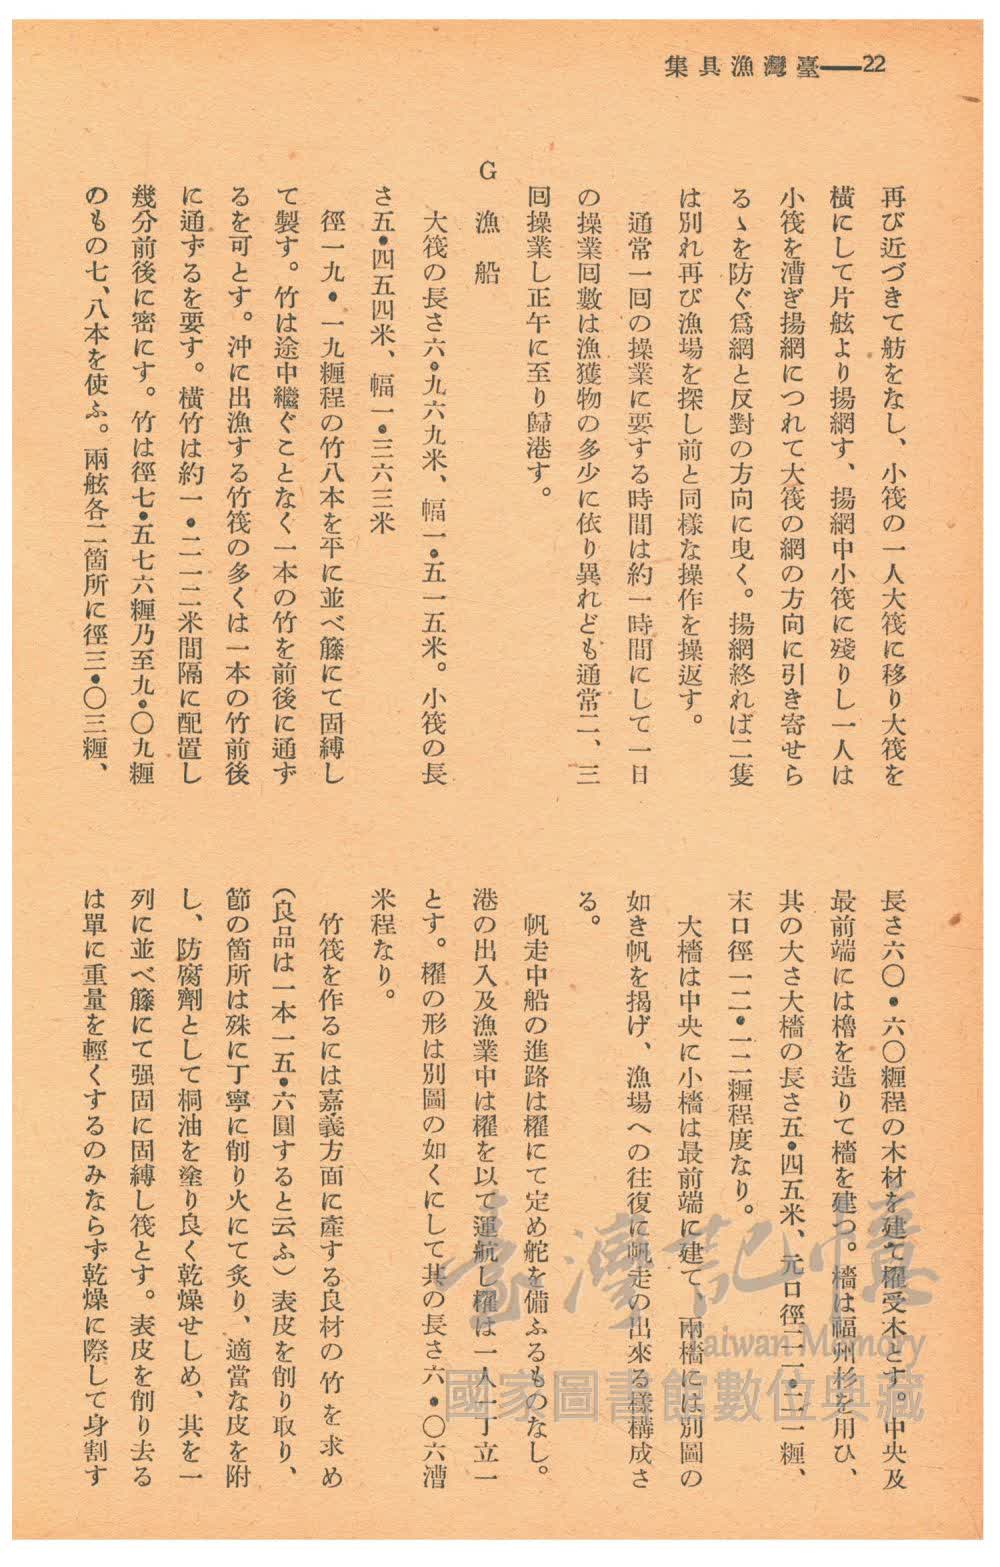 臺灣漁具集——22
再び近づきて舫をなし、小筏の一人大筏に移り大筏を
橫にして片舷より揚網す、揚網中小筏に殘りし一人は
小筏を漕ぎ揚網につれて大筏の網の方向に引き寄せら
るゝを防ぐ爲網と反對の方向に曳く。揚網終れば二隻
は別れ再び漁場を探し前と同樣な操作を操返す。
通常一囘の操業に要する時間は約一時間にして一日
の操業囘數は漁獲物の多少に依り異れども通常二、三
囘操業し正午に至り歸港す。
G 漁船
大筏の長さ六•九六九米、幅一•五一五米。小筏の長
さ五•四五四米、幅一•三六三米
徑一九•一九糎程の竹八本を平に並べ籐にて固縛し
て製す。竹は途中繼ぐことなく一本の竹を前後に通ず
るを可とす。沖に出漁する竹筏の多くは一本の竹前後
に通ずるを要す。橫竹は約一•二一二米間隔に配置し
幾分前後に密にす。竹は徑七•五七六糎乃至九•〇九糎
のもの七、八本を使ふ。兩舷各二箇所に徑三•〇三糎、
長さ六〇•六〇糎程の木材を建て櫂受木とす。中央及
最前端には櫓を造りて檣を建つ。檣は福州杉を用ひ、
其の大さ大檣の長さ五•四五米、元口徑二一•二一糎、
末口徑一二•一二糎程度なり。
大檣は中央に小檣は最前端に建て、兩檣には別圖の
如き帆を揭げ、漁場への往復に帆走の出來る樣構成さ
る。
帆走中船の進路は櫂にて定め舵を備ふるものなし。
港の出入及漁業中は櫂を以て運航し櫂は一人一丁立一
とす。櫂の形は別圖の如くにして其の長さ六•〇六漕
米程なり。
竹筏を作るには嘉義方面に產する良材の竹を求め
（良品は一本一五•六圓すると云ふ）表皮を削り取り、
節の箇所は殊に丁寧に削り火にて炙り、適當な皮を附
し、防腐劑として桐油を塗り良く乾燥せしめ、其を一
列に並べ籐にて强固に固縛し筏とす。表皮を削り去る
は單に重量を輕くするのみならず乾燥に際して身割す
臺灣記憶
Taiwan Memory
國家圖書館數位典藏